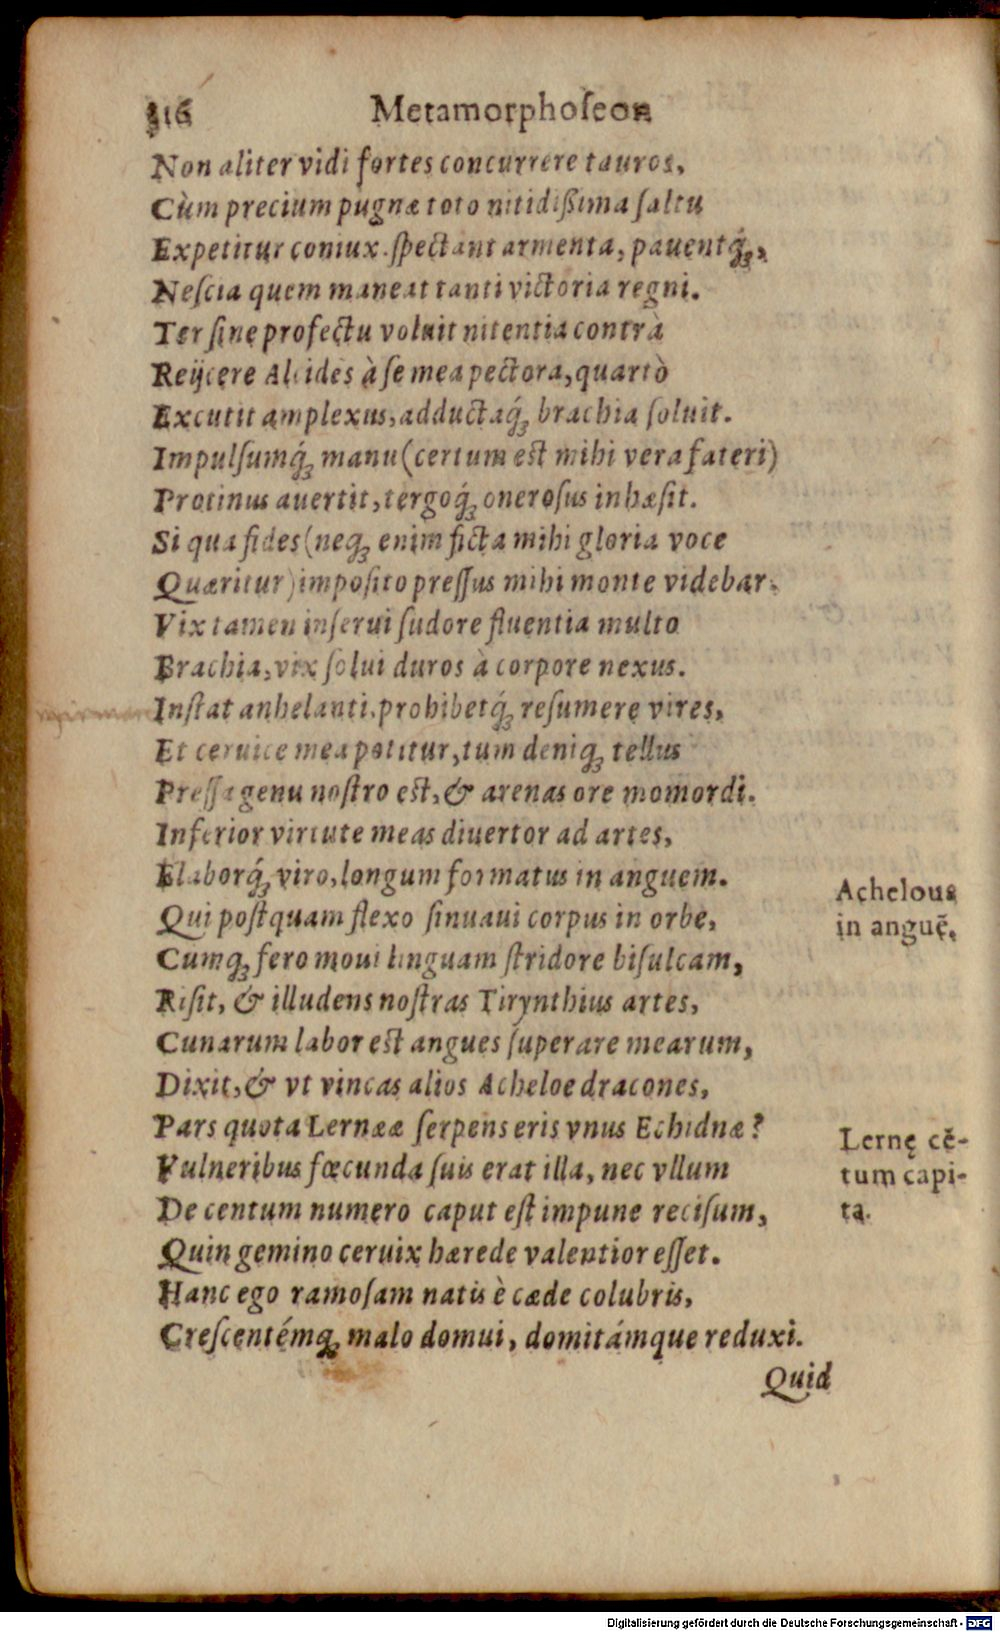 316 Metamorphoſeon
Non aliter vidi fortes concurrere tauros,
Cùm precium pugnæ toto nitidißima ſaltu
Expetitur coniux. ſpectant armenta, pauentq́;,
Neſcia quem maneat tanti victoria regni.
Ter ſine profectu voluit nitentia contrà
Reijcere Alcides à ſe mea pectora, quartò
Excutit amplexus, adductaq́; brachia ſoluit.
Impulſumq́; manu (certum est mihi vera fateri)
Protinus auertit, tergoq́; oneroſus inhæſit.
Si qua fides (neq; enim ficta mihi gloria voce
Quæritur) impoſito preſſus mihi monte videbar.
Vix tamen inſerui ſudore fluentia multo
Brachia, vix ſolui duros à corpore nexus.
Inſtat anhelanti, prohibetq́; reſumere vires,
Et ceruice mea potitur, tum deniq; tellus
Preſſa genu noſtro est, & arenas ore momordi.
Inferior virtute meas diuertor ad artes,
Elaborq́; viro, longum formatus in anguem.
Qui poſtquam flexo ſinuaui corpus in orbe,
Cumq; fero moui linguam ſtridore biſulcam,
Riſit, & illudens noſtras Tirynthius artes,
Cunarum labor est angues ſuperare mearum,
Dixit, & vt vincas alios Acheloe dracones,
Pars quota Lernææ ſerpens eris vnus Echidnæ?
Vulneribus fœcunda ſuis erat illa, nec vllum
De centum numero caput eſt impune reciſum,
Quin gemino ceruix hærede valentior eſſet.
Hanc ego ramoſam natis è cæde colubris,
Creſcentémq; malo domui, domitámque reduxi.
Quid
Achelous
in anguẽ.
Lernę cẽ-
tum capi-
ta.
Digitalisierung gefördert durch die Deutsche Forschungsgemeinschaft - DFG